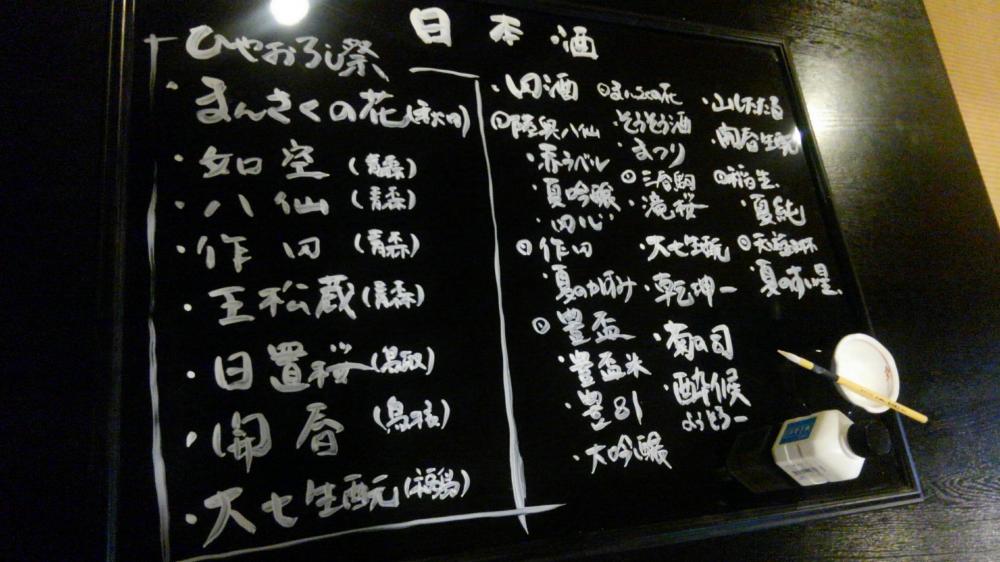 日本酒
ひやおろし祭
・まんさくの花(秋田)
・如空(青森)
・八仙(青森)
・作田(青森)
・王松蔵(青森)
・日置桜(鳥取)
・開春(島根)
・大七生酛(福島)
・田酒
①陸奥八仙
・赤ラベル
・夏吟醸
・作田
・夏のかすみ
・豊盃
・豊盃米
・豊81
・大吟醸
・まんさくの花
・まつり
・三春駒
・滝桜
・大七生酛
・乾坤一
・菊の司
・酔候
ようそろー
・開春生酛
・夏純